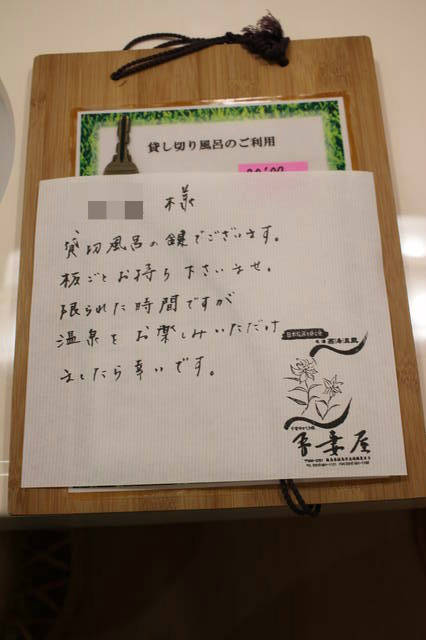 貸し切り風呂のご利用
様
貸切風呂の鍵でございます。
板ごとお持ち下さいませ。
限られた時間ですが
温泉をお楽しみいただけ
ましたら幸いです。
高湯温泉
吾妻屋